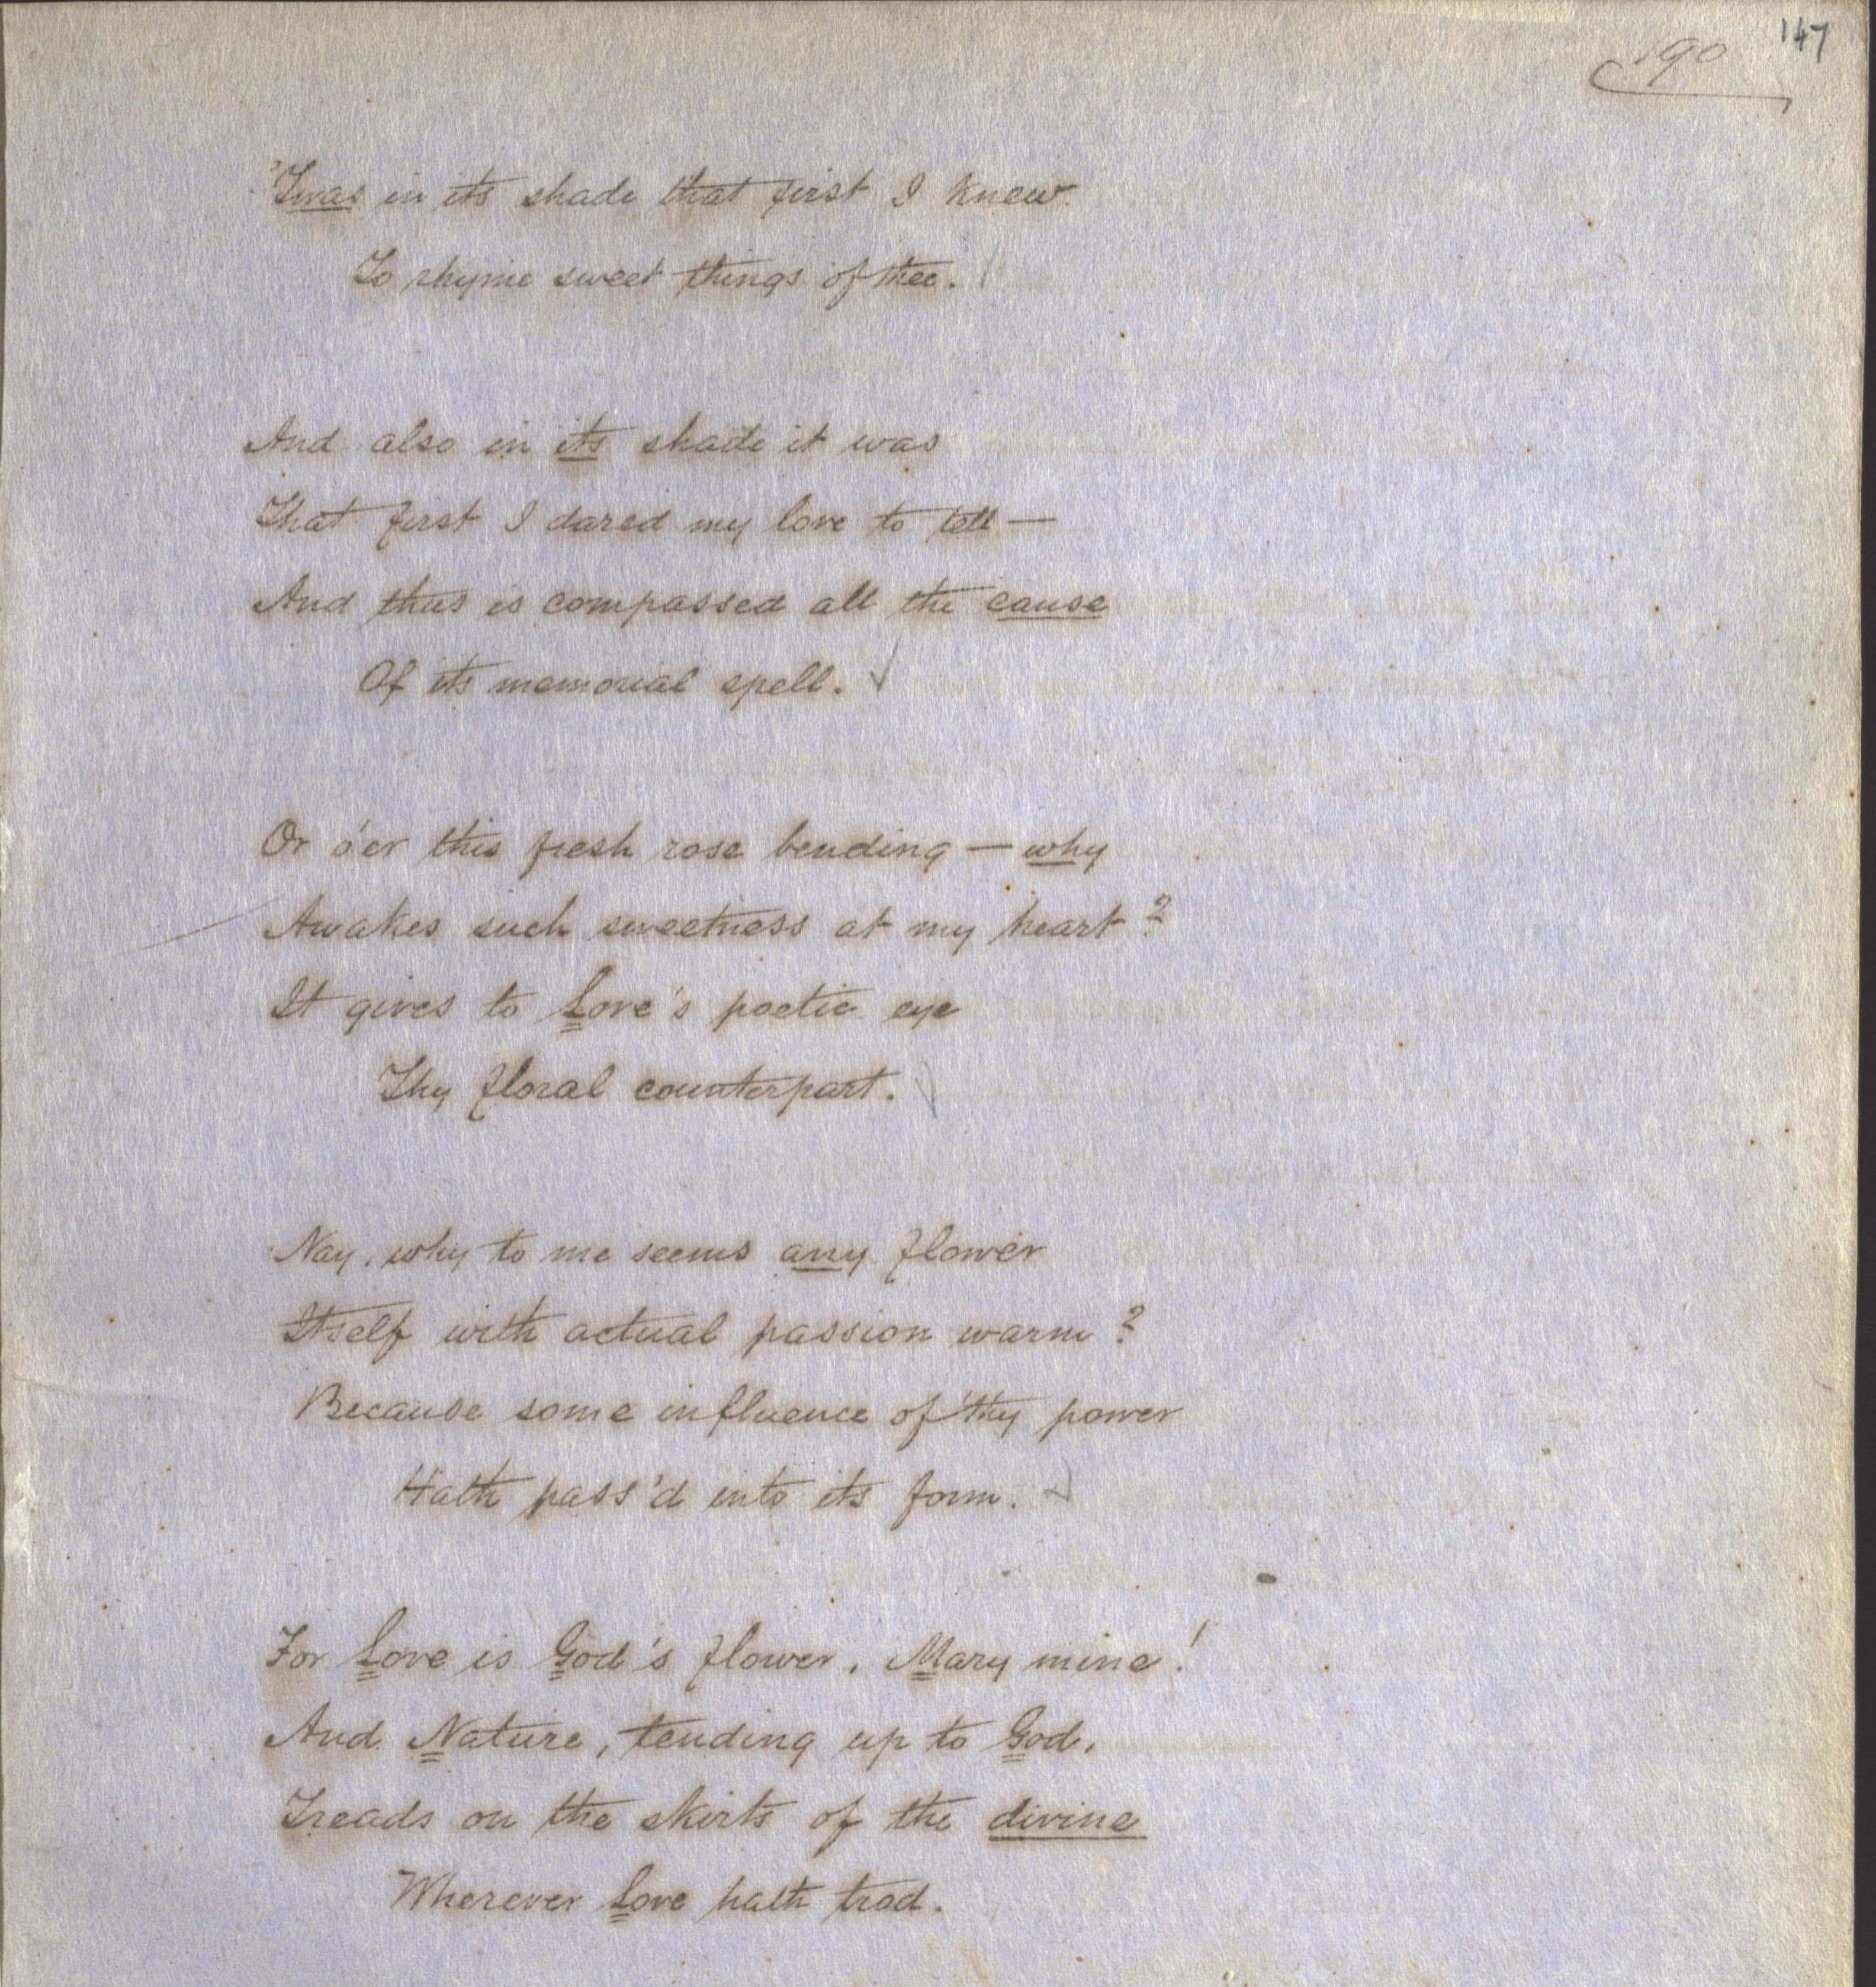 147
190
'Twas in its shade that first I knew
To rhyme sweet things of thee.
And also in its shade it was
That first I dared my love to tell —
And thus is compassed all the cause
Of its memorial spell.
Or o'er this fresh rose bending — why
Awakes such sweetness at my heart?
It gives to Love's poetic eye
Thy floral counterpart.
Nay, why to me seems any flower
Itself with actual passion warm?
Because some influence of thy power
Hath pass'd into its form.
For Love is God's flower, Mary mine!
And Nature, tending up to God,
Treads on the skirts of the divine
Wherever Love hath trod.